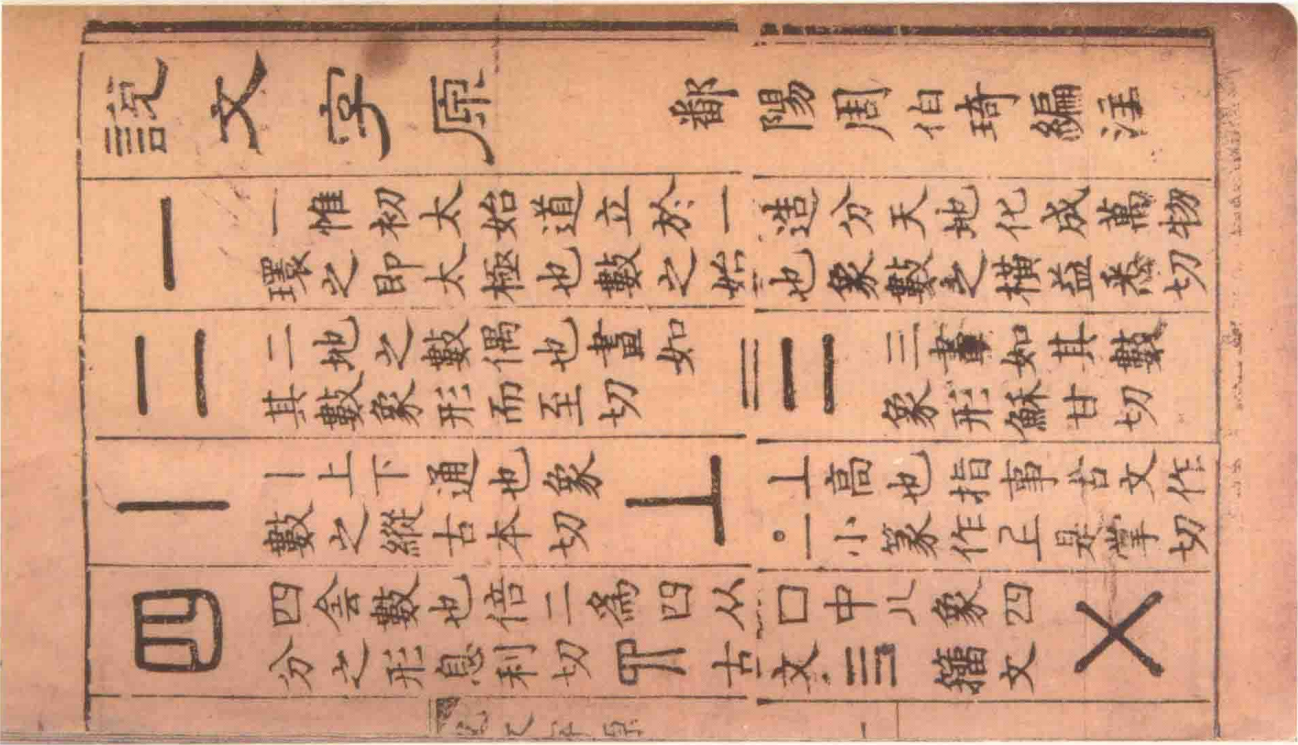 說文字原　鄱陽周伯琦編注
一
一惟初太始道立於一造分天地化成萬物
環之即太極也數之始也象數之橫益悉切
二
二地之數偶也畫如
其數象形而至切
三
三畫如其數
象形穌甘切
丨
丨上下通也象
數之縱古本切
丄
丄高也指事古文作
小篆作上是掌切
四
四侌數也倍二為四从囗中八象四
分之形息利切 古文亖籀文
㐅
說文字原　一